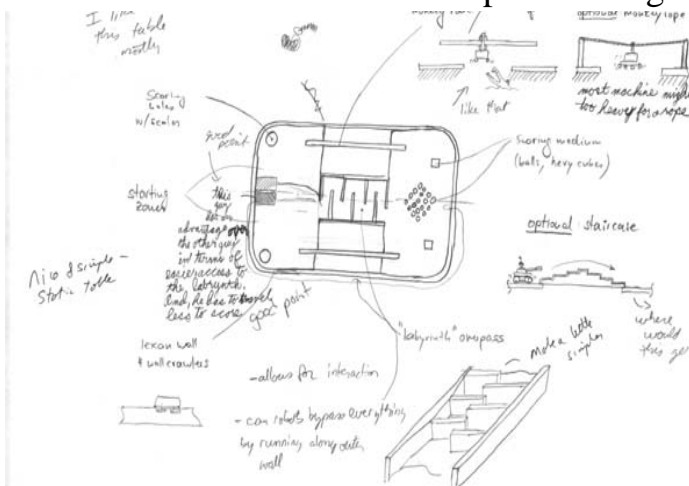 I like
this table
mostly
optional monkey rope
like that
most machine might
too heavy for a rope
Scoring
holes
w/scales
good
point
starting
zones
this
guy
has an
advantage over
the other guy
in terms of
easier access to
the labyrinth.
And, he has to travel
less to score
good point
Nice & simple -
Static table
scoring medium
(balls, hevy cubes)
optional: staircase
where
would
this go
lexan wall
4 wallcrawlers
"labyrinth" overpass
make a little
simpler
-allows for interaction
- can robots bypass everything
by running along outer
wall